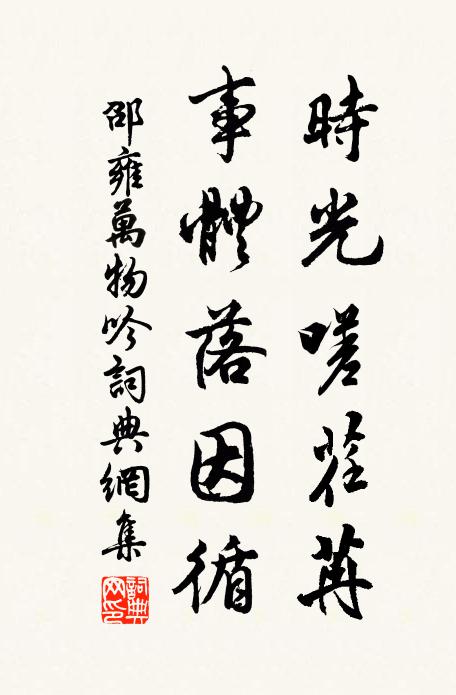 時光嗟荏苒
事體落因循
邵雍萬物吟詞典網集
詞典網印